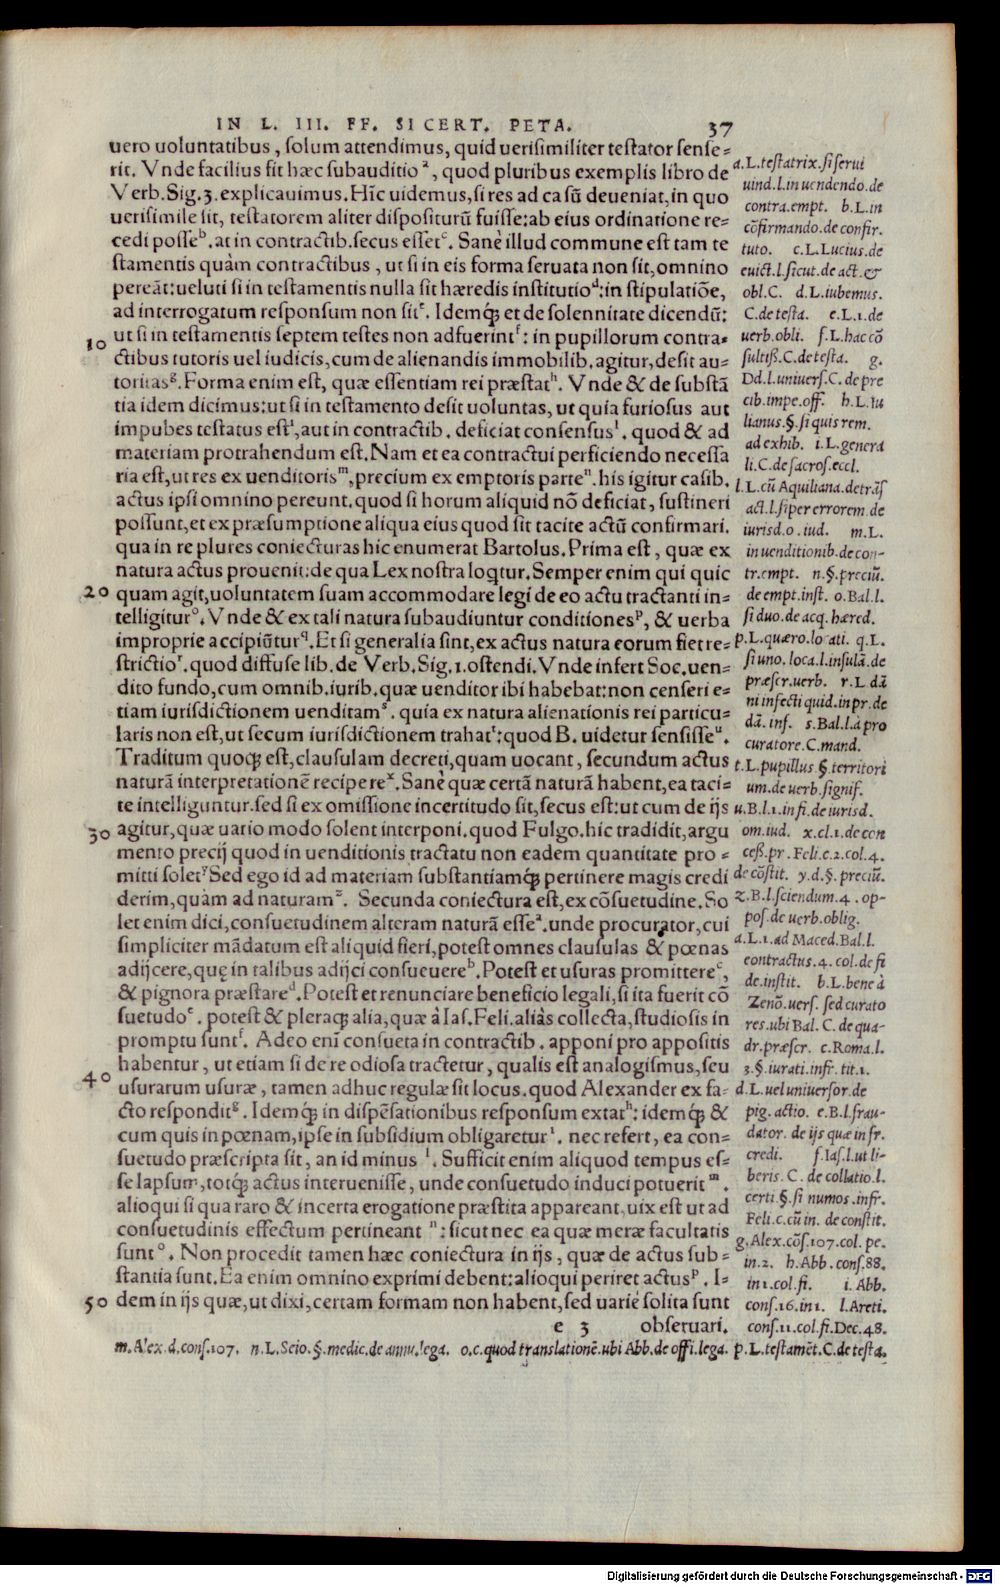 IN L. III. FF. SI CERT. PETA. 37
uero uoluntatibus, solum attendimus, quid uerisimiliter testator sense=
rit. Vnde facilius fit hæc subauditio ᵃ, quod pluribus exemplis libro de
Verb. Sig. 3. explicauimus. Hîc uidemus, si res ad casũ deueniat, in quo
uerisimile sit, testatorem aliter dispositurũ fuisse: ab eius ordinatione re=
cedi posse ᵇ. at in contractib. secus esset ᶜ. Sanè illud commune est tam te
stamentis quàm contractibus, ut si in eis forma seruata non sit, omnino
pereãt: ueluti si in testamentis nulla sit hæredis institutio ᵈ: in stipulatiõe,
ad interrogatum responsum non sit ᵉ. Idemq́; et de solennitate dicendũ:
10 ut si in testamentis septem testes non adfuerint ᶠ: in pupillorum contra=
ctibus tutoris uel iudicis, cum de alienandis immobilib. agitur, desit au=
toritas ᵍ. Forma enim est, quæ essentiam rei præstat ʰ. Vnde & de substã
tia idem dicimus: ut si in testamento desit uoluntas, ut quia furiosus aut
impubes testatus est ⁱ, aut in contractib. deficiat consensus ˡ. quod & ad
materiam protrahendum est. Nam et ea contractui perficiendo necessa
ria est, ut res ex uenditoris ᵐ, precium ex emptoris parte ⁿ. his igitur casib.
actus ipsi omnino pereunt. quod si horum aliquid nõ deficiat, sustineri
possunt, et ex præsumptione aliqua eius quod sit tacite actũ confirmari.
qua in re plures coniecturas hic enumerat Bartolus. Prima est, quæ ex
natura actus prouenit: de qua Lex nostra loq̃tur. Semper enim qui quic
20 quam agit, uoluntatem suam accommodare legi de eo actu tractanti in=
telligitur ᵒ. Vnde & ex tali natura subaudiuntur conditiones ᵖ, & uerba
improprie accipiũtur q. Et si generalia sint, ex actus natura eorum fiet re=
strictio ʳ. quod diffuse lib. de Verb. Sig. 1. ostendi. Vnde infert Soc. uen=
dito fundo, cum omnib. iurib. quæ uenditor ibi habebat: non censeri e=
tiam iurisdictionem uenditam ˢ. quia ex natura alienationis rei particu=
laris non est, ut secum iurisdictionem trahat ᵗ: quod B. uidetur sensisse ᵘ.
Traditum quoq; est, clausulam decreti, quam uocant, secundum actus
naturã interpretationẽ recipere ˣ. Sanè quæ certã naturã habent, ea taci=
te intelliguntur. sed si ex omissione incertitudo sit, secus est: ut cum de ijs
30 agitur, quæ uario modo solent interponi. quod Fulgo. hic tradidit, argu
mento precij quod in uenditionis tractatu non eadem quantitate pro=
mitti solet ʸ. Sed ego id ad materiam substantiamq́; pertinere magis credi
derim, quàm ad naturam ᶻ. Secunda coniectura est, ex cõsuetudine. So
let enim dici, consuetudinem alteram naturã esse ᵃ. unde procurator, cui
simpliciter mãdatum est aliquid fieri, potest omnes clausulas & pœnas
adijcere, quę in talibus adijci consueuere ᵇ. Potest et usuras promittere ᶜ,
& pignora præstare ᵈ. Potest et renunciare beneficio legali, si ita fuerit cõ
suetudo ᵉ. potest & pleraq; alia, quæ à Ias. Feli. aliàs collecta, studiosis in
promptu sunt ᶠ. Adeo enĩ consueta in contractib. apponi pro appositis
habentur, ut etiam si de re odiosa tractetur, qualis est analogismus, seu
40 usurarum usuræ, tamen adhuc regulæ sit locus. quod Alexander ex fa=
cto respondit ᵍ. Idemq́; in dispẽsationibus responsum extat ʰ: idemq́; &
cum quis in pœnam, ipse in subsidium obligaretur ⁱ. nec refert, ea con=
suetudo præscripta sit, an id minus ˡ. Sufficit enim aliquod tempus es=
se lapsum, totq́; actus interuenisse, unde consuetudo induci potuerit ᵐ.
alioqui si qua raro & incerta erogatione præstita appareant, uix est ut ad
consuetudinis effectum pertineant ⁿ: sicut nec ea quæ meræ facultatis
sunt ᵒ. Non procedit tamen hæc coniectura in ijs, quæ de actus sub=
stantia sunt. Ea enim omnino exprimi debent: alioqui periret actus ᵖ. I=
50 dem in ijs quæ, ut dixi, certam formam non habent, sed uariè solita sunt
e 3 obseruari.
a. L. testatrix. si serui
uind. l. in uendendo. de
contra. empt. b. L. in
cõfirmando. de confir.
tuto. c. L. Lucius. de
euict. l. sicut. de act. &
obl. C. d. L. iubemus.
C. de testa. e. L. 1. de
uerb. obli. f. L. hac cõ
sultiß. C. de testa. g.
Dd. l. uniuers. C. de pre
cib. impe. off. h. L. Iu
lianus. §. si quis rem.
ad exhib. i. L. genera
li. C. de sacros. eccl.
l. L. cũ Aquiliana. de trãs
act. l. si per errorem. de
iurisd. o. iud. m. L.
in uenditionib. de con-
tr. empt. n. §. preciũ.
de empt. inst. o. Bal. l.
si duo. de acq. hæred.
p. L. quæro. locati. q. L.
si uno. loca. l. insulã. de
præscr. uerb. r. L dã
ni infecti quid. in pr. de
dã. inf. s. Bal. l. à pro
curatore. C. mand.
t. L. pupillus. §. territori
um. de uerb. signif.
u. B. l. 1. in fi. de iurisd.
om. iud. x. cl. 1. de con
ceß. pr. Feli. c. 2. col. 4.
de cõstit. y. d. §. preciũ.
z. B. l. sciendum. 4. op-
pos. de uerb. oblig.
a. L. 1. ad Maced. Bal. l.
contractus. 4. col. de fi
de. instit. b. L. bene à
Zenõ. uers. sed curato
res. ubi Bal. C. de qua-
dr. præscr. c. Roma. l.
3. §. iurati. infr. tit. 1.
d. L. uel uniuersor. de
pig. actio. e. B. l. frau-
dator. de ijs quæ in fr.
credi. f. Ias. l. ut li-
beris. C. de collatio. l.
certi. §. si numos. infr.
Feli. c. cũ in. de constit.
g. Alex. cõs. 107. col. pe.
in. 2. h. Abb. cons. 88.
in 1. col. fi. i. Abb.
cons. 16. in 1. l. Areti.
cons. 11. col. fi. Dec. 48.
m. Alex. d. cons. 107. n. L. Seio. §. medic. de annu. lega. o. c. quod translationẽ. ubi Abb. de offi. lega. p. L. testamẽt. C. de testa.
Digitalisierung gefördert durch die Deutsche Forschungsgemeinschaft - DFG